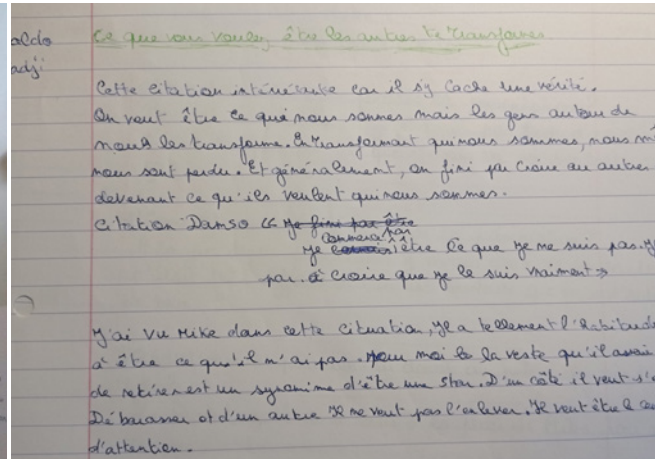 aldo
adji
Ce que vous voulez être les autres te transformes
Cette citation intéressante car il s'y cache une vérité.
On veut être ce qui nous sommes mais les gens autour de
nous les transforme. En transformant qui nous sommes, nous
nous sont perdu. Et généralement, on fini par croire au autres
devenant ce qu'ils veulent qui nous sommes.
Citation Damso « Je fini par être
commence par
Je être ce que je ne suis pas. J
par à croire que je le suis vraiment »
J'ai vu Mike dans cette cituation, Il a tellement l'habitud
à être ce qu'il n'ai pas. Pour moi la veste qu'il
de retirer est un synonime d'être une star. D'un côté il veut s'
Débarasser et d'un autre Il ne veut pas l'enlever. Il veut être le
d'attention.